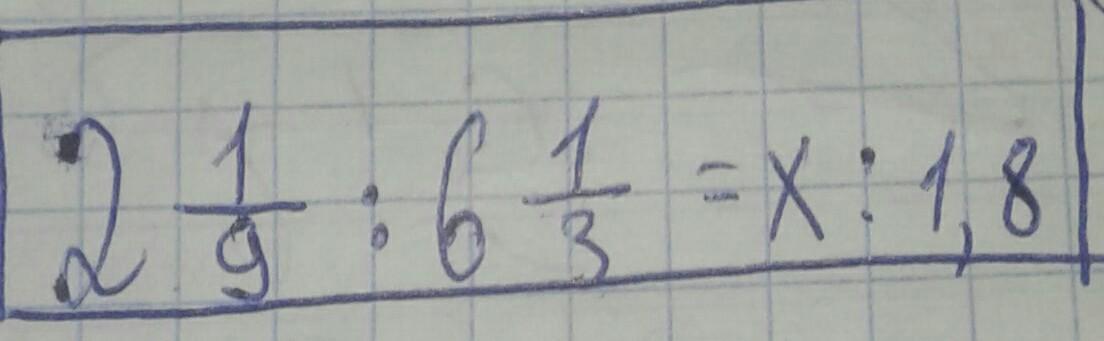 2 1/9 : 6 1/3 = x : 1,8